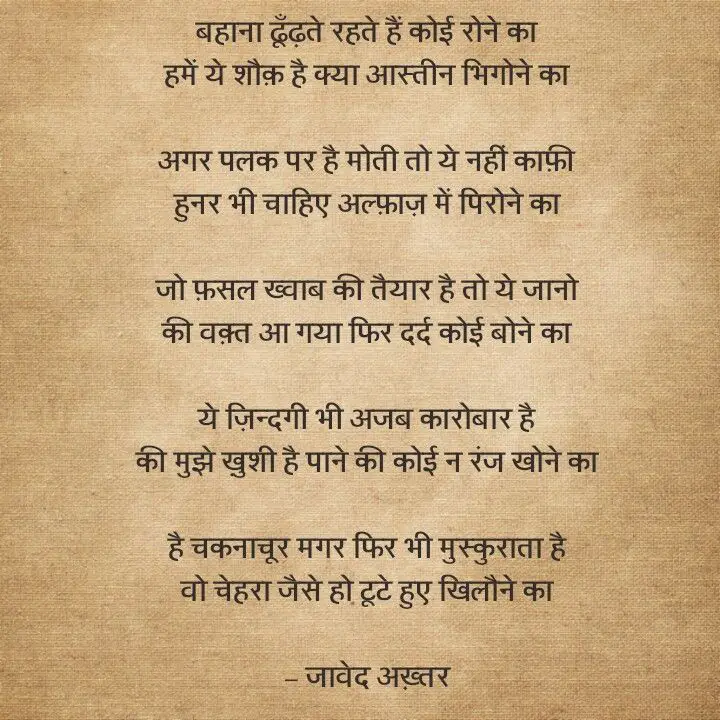 बहाना ढूँढ़ते रहते हैं कोई रोने का
हमें ये शौक़ है क्या आस्तीन भिगोने का
अगर पलक पर है मोती तो ये नहीं काफ़ी
हुनर भी चाहिए अल्फ़ाज़ में पिरोने का
जो फ़सल ख्वाब की तैयार है तो ये जानो
की वक़्त आ गया फिर दर्द कोई बोने का
ये ज़िन्दगी भी अजब कारोबार है
की मुझे ख़ुशी है पाने की कोई न रंज खोने का
है चकनाचूर मगर फिर भी मुस्कुराता है
वो चेहरा जैसे हो टूटे हुए खिलौने का
– जावेद अख़्तर